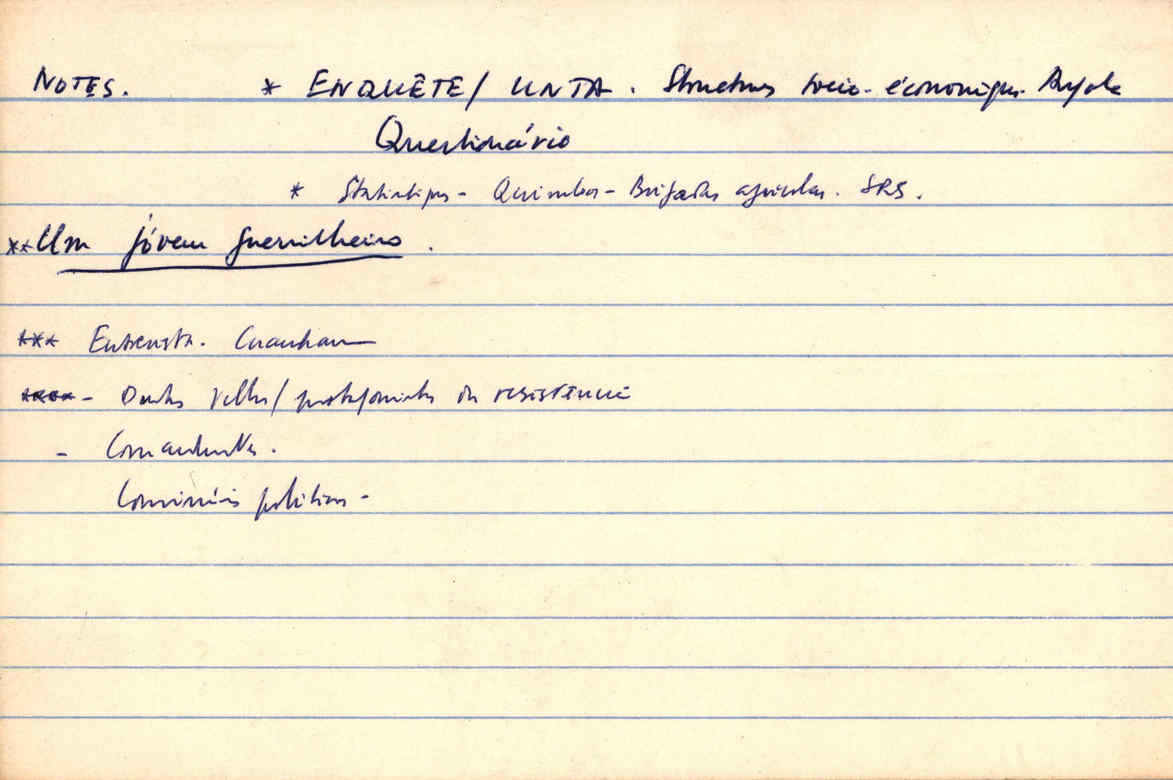 NOTES. * ENQUÊTE / UNTA. Structures socio-économiques Angola
Questionário
* Statistiques - Quimbos - Brigadas agrícolas. SRS.
** Um jóvem guerrilheiro.
*** Entrevista.
**** - Velhos / protagonistas da resistência
- Comandantes.
Comissários políticos -